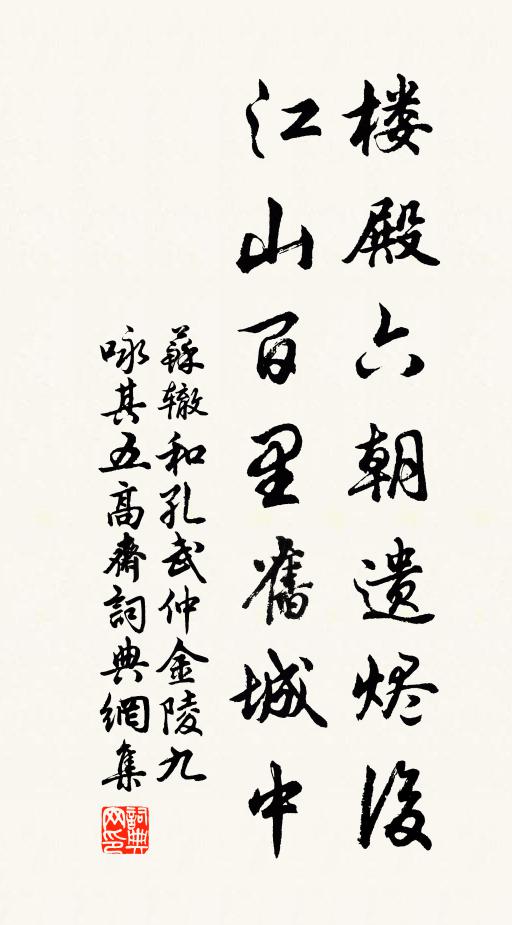 楼殿六朝遗烬後
江山百里舊城中
蘇辙和孔武仲金陵九
咏其五高齋詞典網集
詞典網印